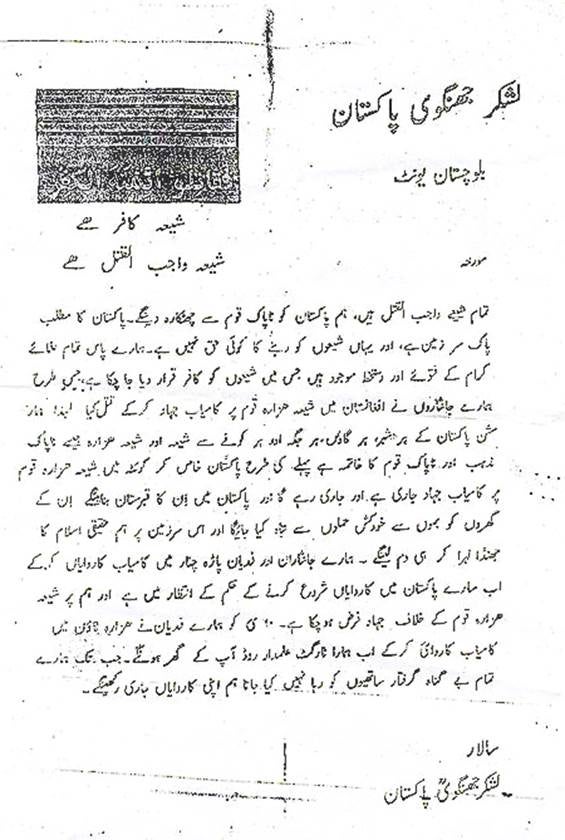 لشکر جھنگوی پاکستان
بلوچستان یونٹ
شیعہ کافر ھے
شیعہ واجب القتل ھے
مورخہ
تمام شیعے واجب القتل ہیں، ہم پاکستان کو ناپاک قوم سے چھٹکارہ دینگے۔ پاکستان کا مطلب
پاک سر زمین ہے، اور یہاں شیعوں کو رہنے کا کوئی حق نہیں ہے۔ ہمارے پاس تمام علمائے
کرام کے فتوئے اور دستخط موجود ہیں جس میں شیعوں کو کافر قرار دیا جا چکا ہے، جس طرح
ہمارے جانثاروں نے افغانستان میں شیعہ ھزارہ قوم پر کامیاب جہاد کرکے قتل کیا لہذا ہمارا
مشن پاکستان کے ہر شہر، ہر گاوں، ہر جگہ اور ہر کونے سے شیعہ اور شیعہ ھزارہ جیسے ناپاک
مذہب اور ناپاک قوم کا خاتمہ ہے پہلے کی طرح پاکستان خاص کر کوئٹہ میں شیعہ ھزارہ قوم
پر کامیاب جہاد جاری ہے اور جاری رہے گا اور پاکستان میں اِن کا قبرستان بنائینگے اِن کے
گھروں کو بموں سے خودکش حملوں سے تباہ کیا جائیگا اور اس سرزمین پر ہم حقیقی اسلام کا
جھنڈا لہرا کر ہی دم لینگے۔ ہمارے جانثاران اور فدیان پاڑہ چنار میں کامیاب کاروایاں کرکے
اب سارے پاکستان میں کاروایاں شروع کرنے کے حکم کے انتظار میں ہے اور ہم پر شیعہ
ھزارہ قوم کے خلاف جہاد فرض ہوچکا ہے۔ مئی کو ہمارے فدیان نے ھزارہ ٹاؤن میں
کامیاب کاروائی کرکے اب ہمارا ٹارگٹ علمدار روڈ آپ کے گھر ہونگے۔ جب تک ہمارے
تمام بے گناہ گرفتار ساتھیوں کو رہا نہیں کیا جاتا ہم اپنی کاروایاں جاری رکھینگے۔
سالار
لشکر جھنگویؒ پاکستان